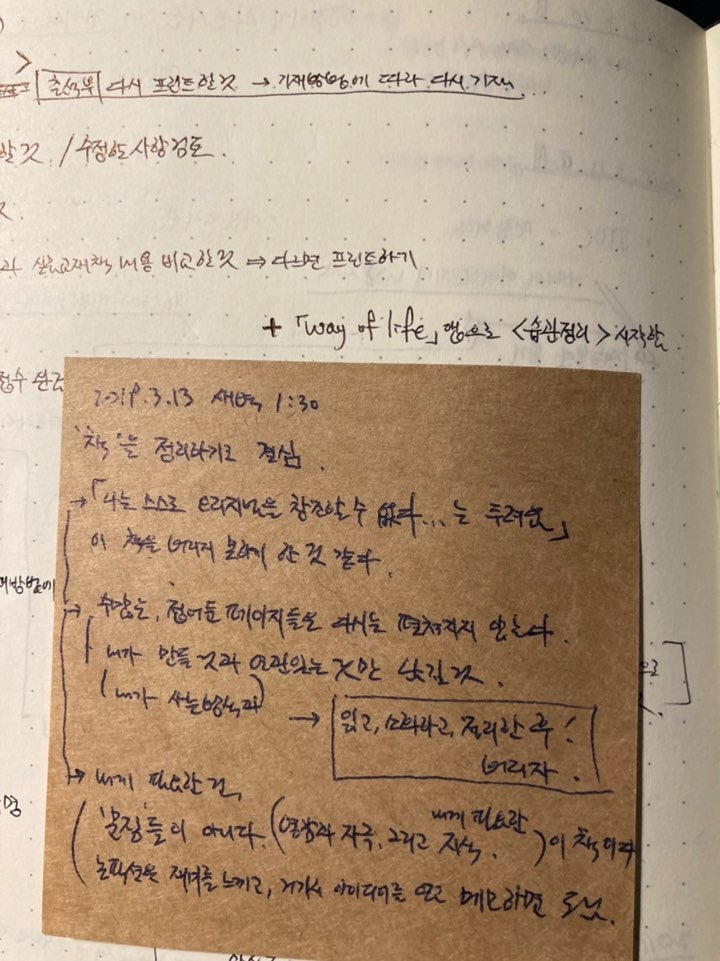 출석부 다시 프린트할 것 → 기재방법에 따라 다시 기재
할 것 / 수정한 사항 검토.
과 실습교재 책 내용 비교할 것 ⇒ 다르면 프린트하기
+ 「way of life」 앱으로 <습관정리> 시작함.
점수
2019.3.13 새벽 1:30
'책'을 정리하기로 결심.
→ 「나는 스스로 오리지널을 창조할 수 없다...는 두려움」
이 책을 버리지 못하게 한 것 같다.
→ 수많은, 접어둔 페이지들은 다시는 펼쳐지지 않는다.
내가 만들 것과 연관있는 것만 남길 것.
(내가 사는 방식과)
→ 읽고, 소화하고, 정리한 후!
버리자.
→ 내게 필요한 건,
'문장'들이 아니다. (영감과 자극, 그리고 내게 필요한 지식.)이 책이다
논픽션은 재미를 느끼고, 거기서 아이디어를 얻고 메모하면 되었.